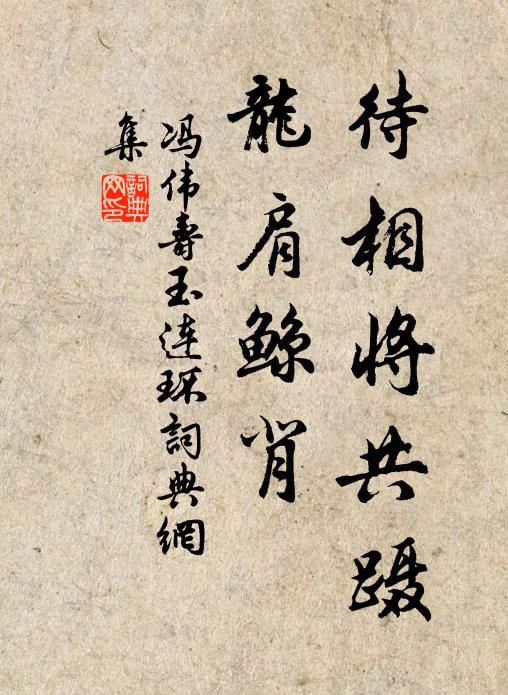 待相将共蹑
龍肩鲸背
冯伟寿玉连环詞典網
集
詞典
网印